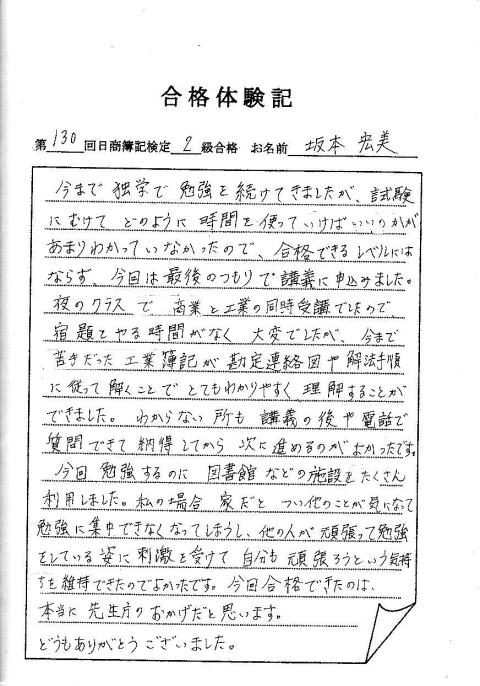 合格体験記
第130回日商簿記検定2級合格 お名前 坂本宏美
今まで独学で勉強を続けてきましたが、試験
にむけてどのように時間を使っていけばいいのかが
あまりわかっていなかったので、合格できるレベルには
ならず、今回は最後のつもりで講義に申込みました。
夜のクラスで商業と工業の同時受講でしたので、
宿題をやる時間がなく大変でしたが、今まで
苦手だった工業簿記が勘定連絡図や解法手順
に従って解くことでとてもわかりやすく理解することが
できました。わからない所も講義の後や電話で
質問できて納得してから次に進めるのがよかったです。
今回勉強するのに図書館などの施設をたくさん
利用しました。私の場合家だとつい他のことが気になって
勉強に集中できなくなってしまうし、他の人が頑張って勉強
をしている姿に刺激を受けて自分も頑張ろうという気持
ちを維持できたのでよかったです。今回合格できたのは、
本当に先生方のおかげだと思います。
どうもありがとうございました。